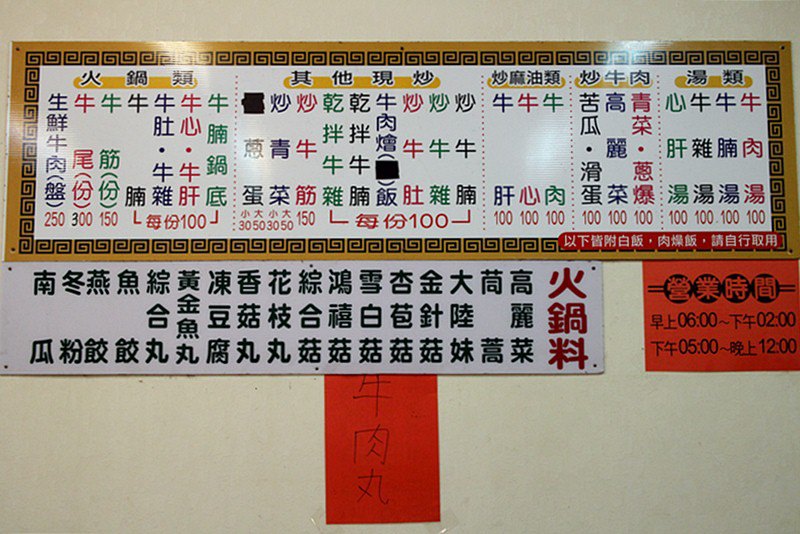 火鍋類
生鮮牛肉(盤) 250
牛尾(份) 300
牛筋(份) 150
牛腩
牛肚・牛雜
牛心・牛肝
牛腩鍋底
每份100
其他現炒
蔥蛋 小30 大50
炒青菜 小30 大50
炒牛筋 150
乾拌牛雜
乾拌牛腩
牛肉燴(飯
炒牛肚
炒牛雜
炒牛腩
每份100
炒麻油類
牛肝 100
牛心 100
牛肉 100
炒牛肉
苦瓜・滑蛋 100
高麗菜 100
青菜・蔥爆 100
湯類
心肝湯 100
牛雜湯 100
牛腩湯 100
牛肉湯 100
以下皆附白飯,肉燥飯,請自行取用
火鍋料
高麗菜
茼蒿
大陸妹
金針菇
杏苞菇
雪白菇
鴻禧菇
綜合菇
花枝丸
香菇丸
凍豆腐
黃金魚丸
綜合丸
魚餃
燕餃
冬粉
南瓜
營業時間
早上06:00~下午02:00
下午05:00~晚上12:00
牛肉丸